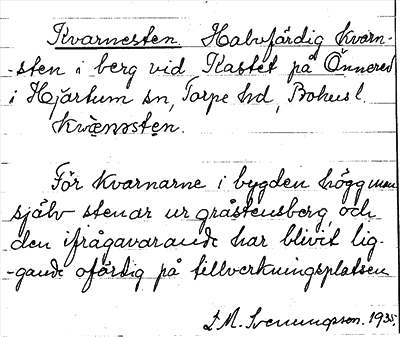 Kvarnesten. Halvfärdig kvarn-
-sten i berg vid Kastet på Önnered
i Hjärtum sn, Torpe hd, Bohusl.
Kvænsten.
För kvarnarne i bygden högg man
själv stenar ur gråstensberg, och
den ifrågavarande har blivit lig-
-gande ofärdig på tillverkningsplatsen
I. M. Svenungsson. 1935.